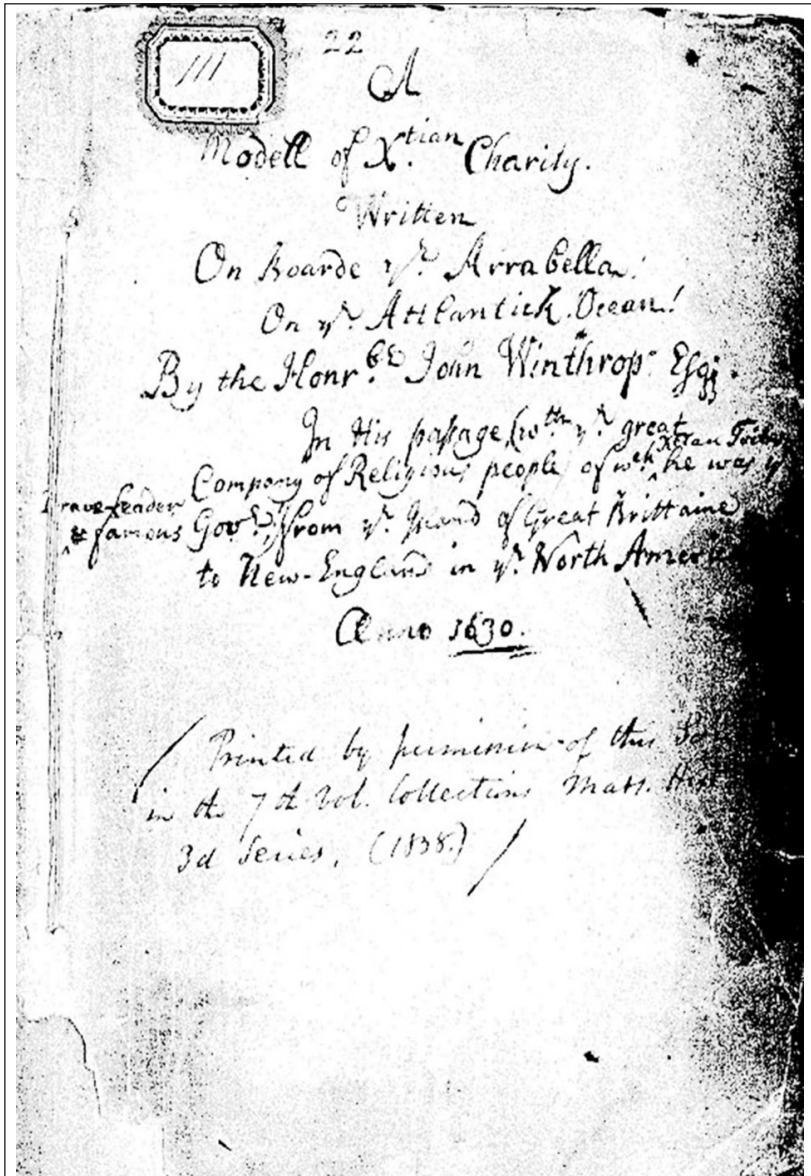 111
22
A
Modell of Xtian Charity.
Written
On Boarde ye Arrabella!
On ye Attlantick Ocean!
By the Honrble John Winthrop Esqr.
In His passage, (wth ye great
Company of Religious people, of wch Xtian Tribes he was ye
Brave Leader & famous Govr;) from ye Island of Great Brittaine
to New-England in ye North America
Anno 1630.
Printed by permission of this
in the 7th Vol. Collections Mass. Hist
3d Series, (1838.)